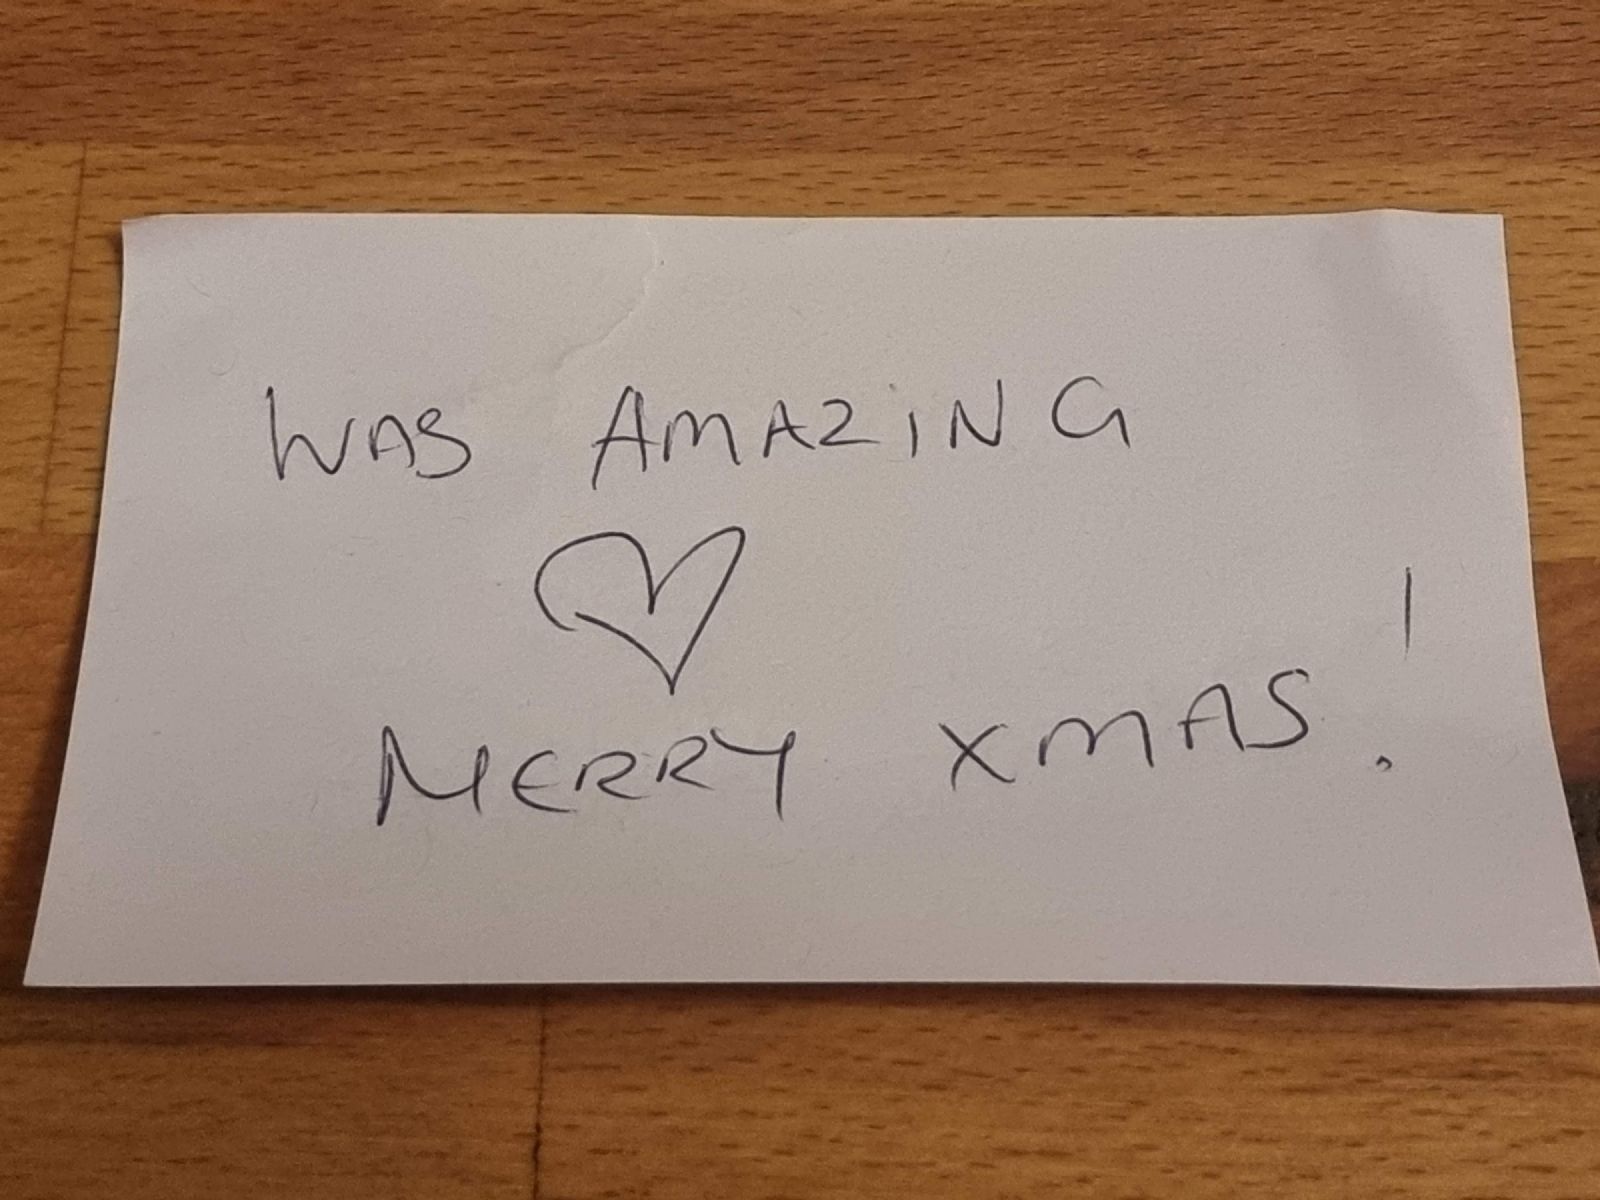 WAS AMAZING
MERRY XMAS!